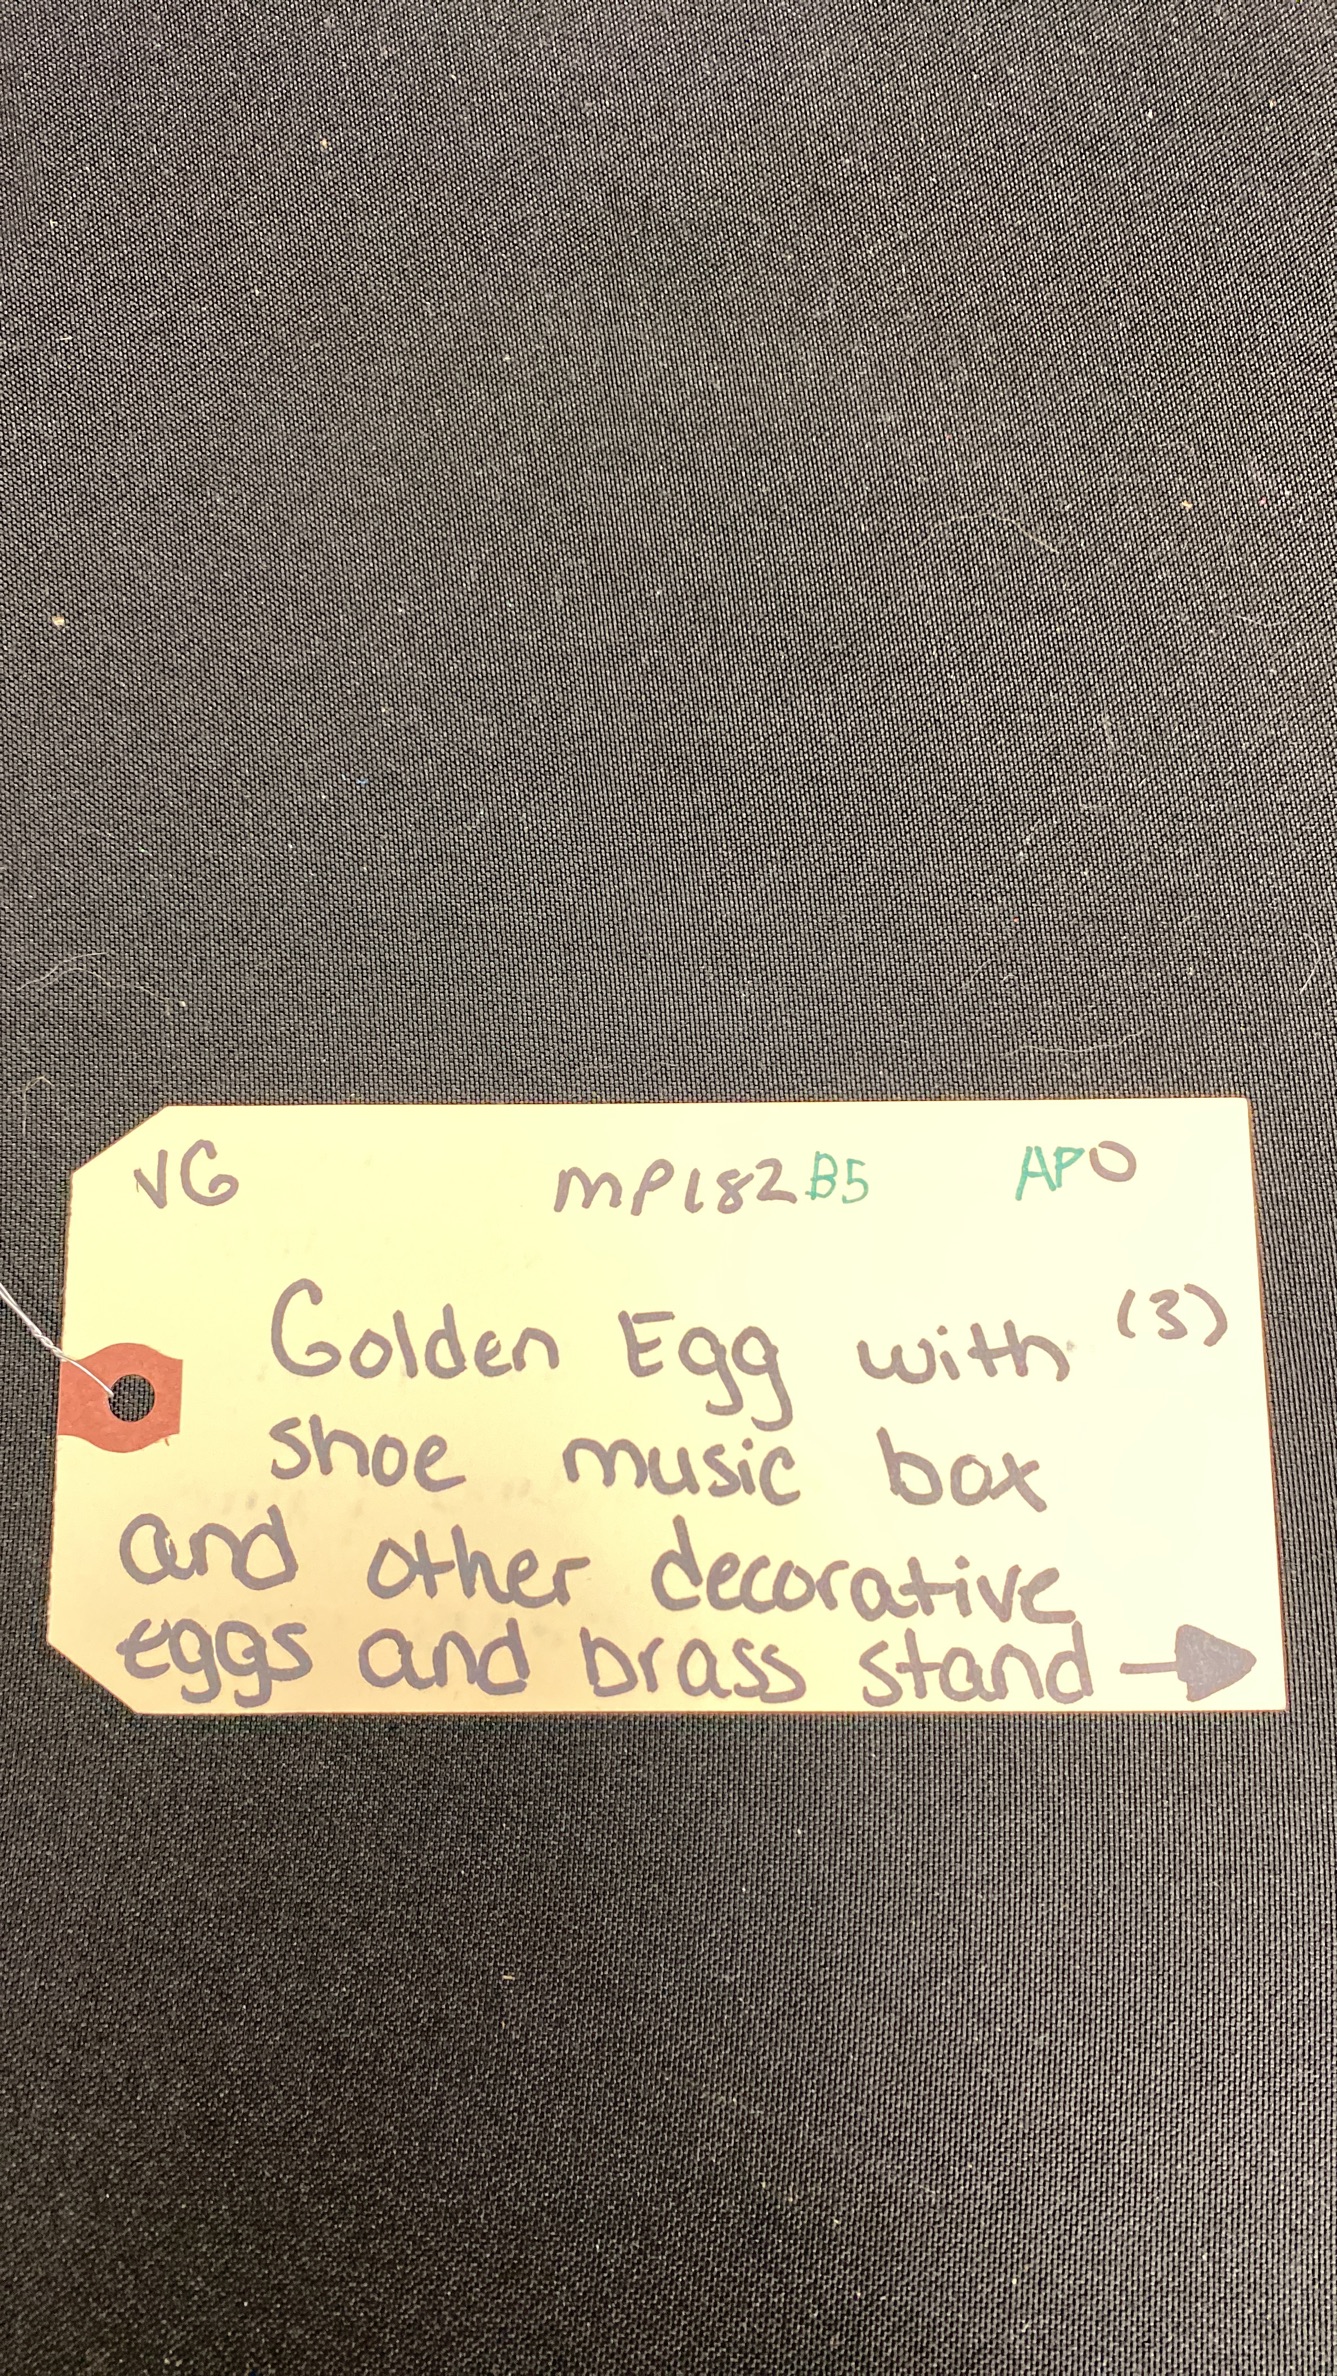 VG MP182B5 APO
Golden Egg with (3)
shoe music box
and other decorative
eggs and brass stand →